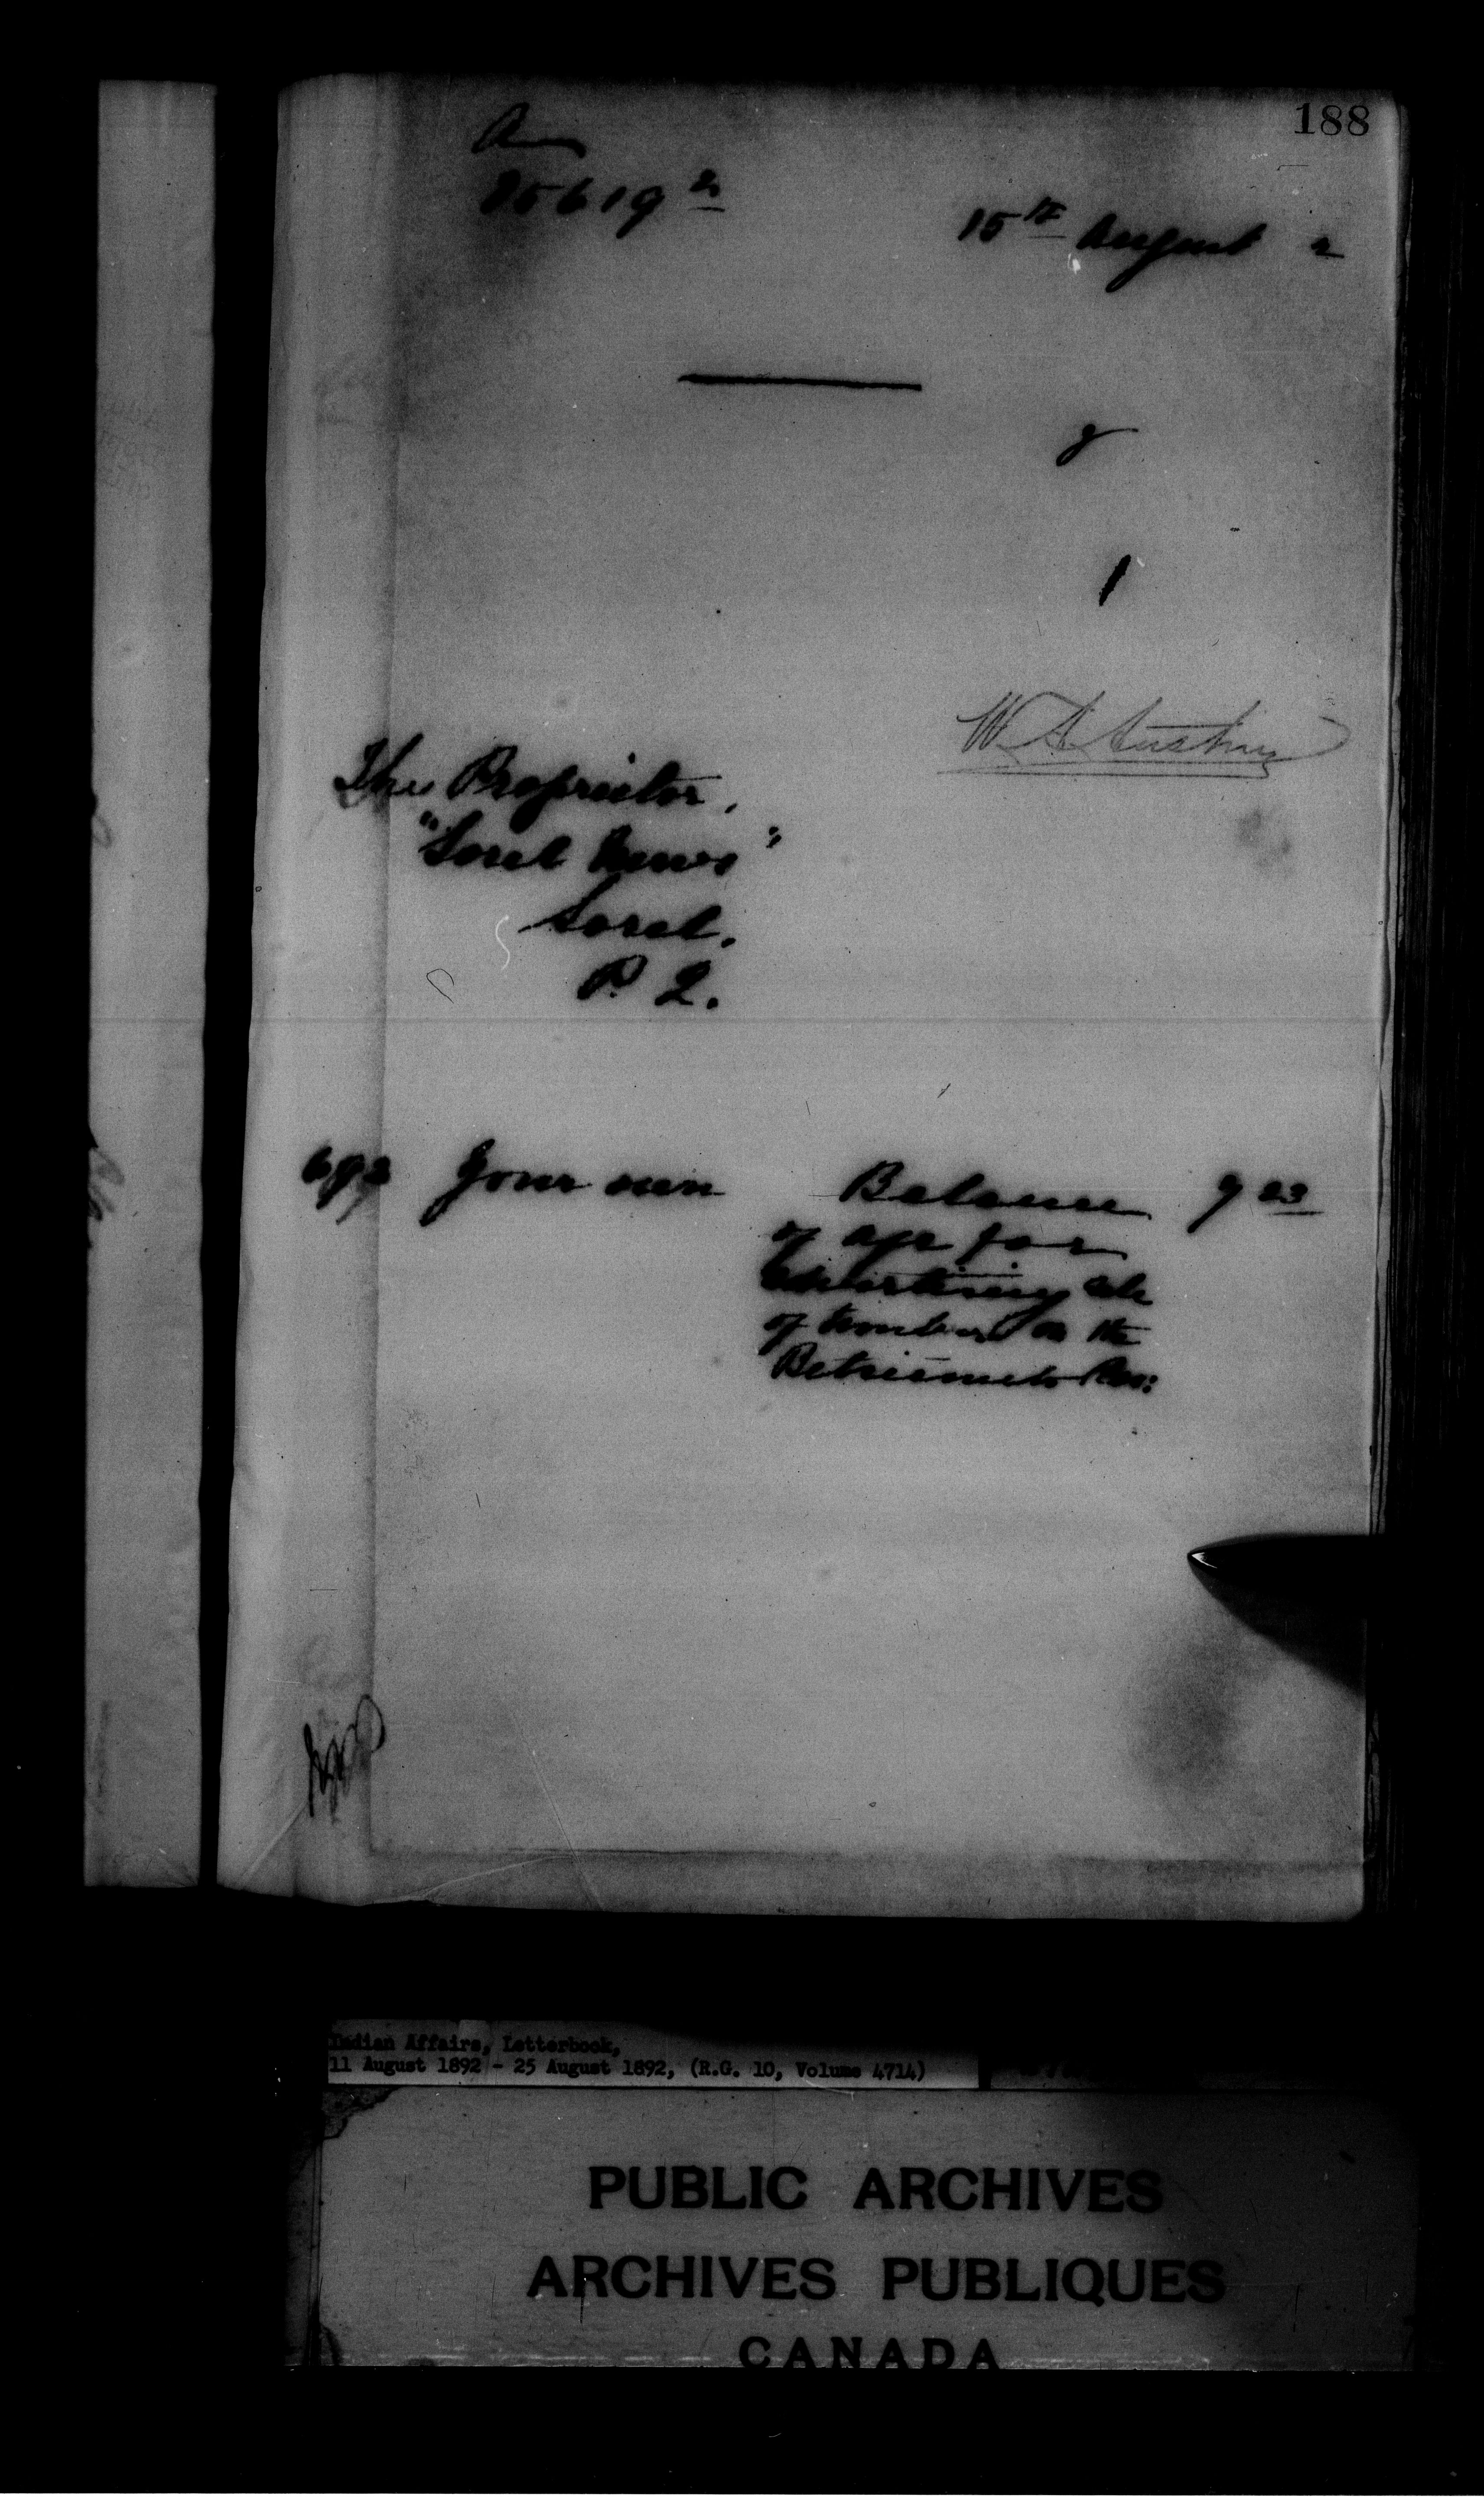 188
A
85619 2
15th August 2
y
1
W. A. Austin
The Proprietor,
"Sorel News"
Sorel.
P. Q.
692 Your own Balance 9 23
of a/c for
advertising sale
of timber on the
Betsiamits Res:
Indian Affairs, Letterbook,
11 August 1892 - 25 August 1892, (R.G. 10, Volume 4714)
PUBLIC ARCHIVES
ARCHIVES PUBLIQUES
CANADA